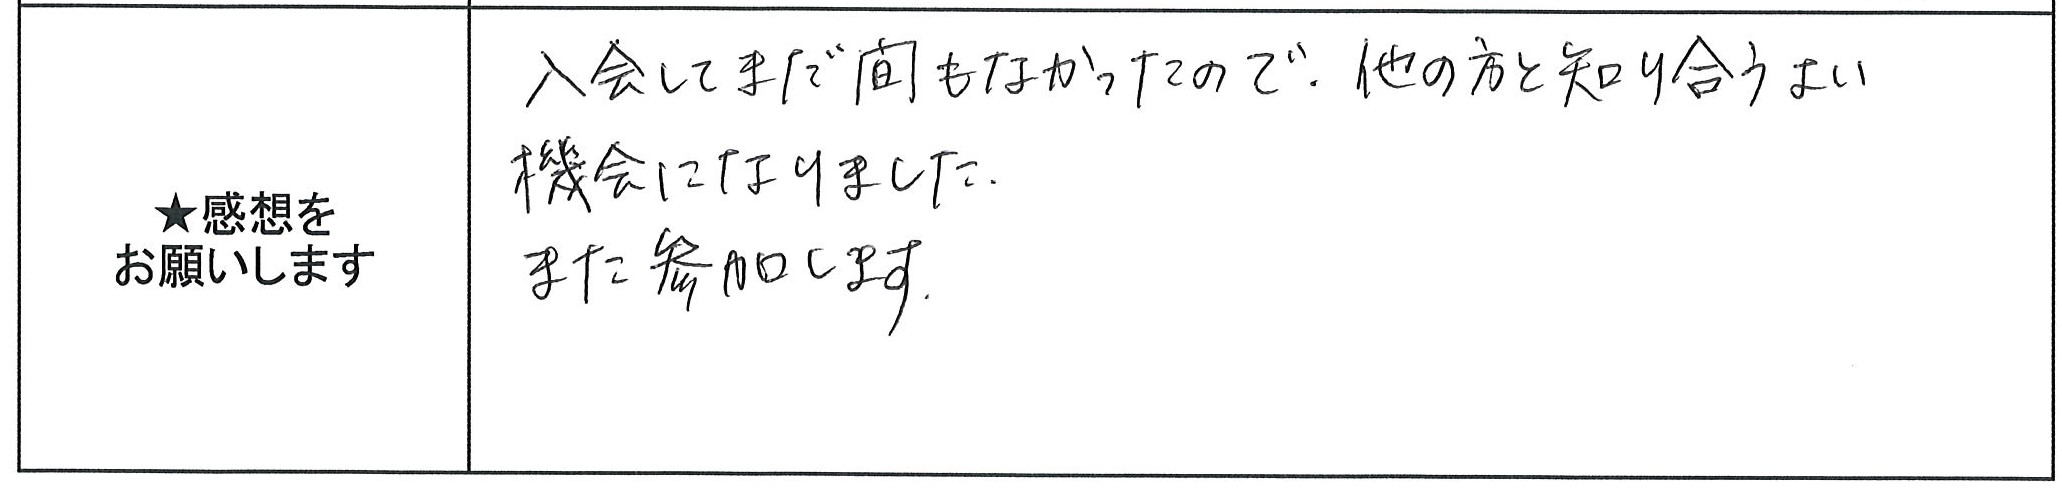 ★感想を
お願いします
入会してまだ間もなかったので、他の方と知り合うよい
機会になりました。
また参加します。